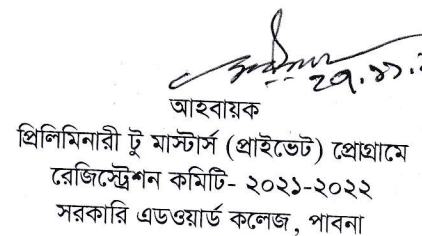 ২৭.১১.
আহবায়ক
প্রিলিমিনারী টু মাস্টার্স (প্রাইভেট) প্রোগ্রামে
রেজিস্ট্রেশন কমিটি- ২০২১-২০২২
সরকারি এডওয়ার্ড কলেজ, পাবনা